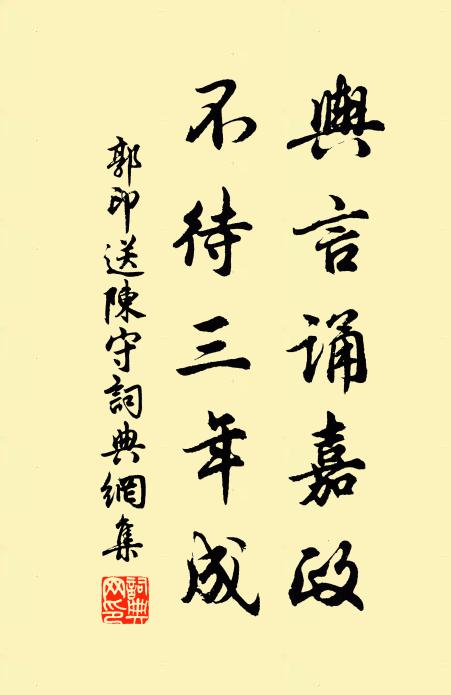 輿言誦嘉政
不待三年成
郭印送陳守詞典網集
詞典網印